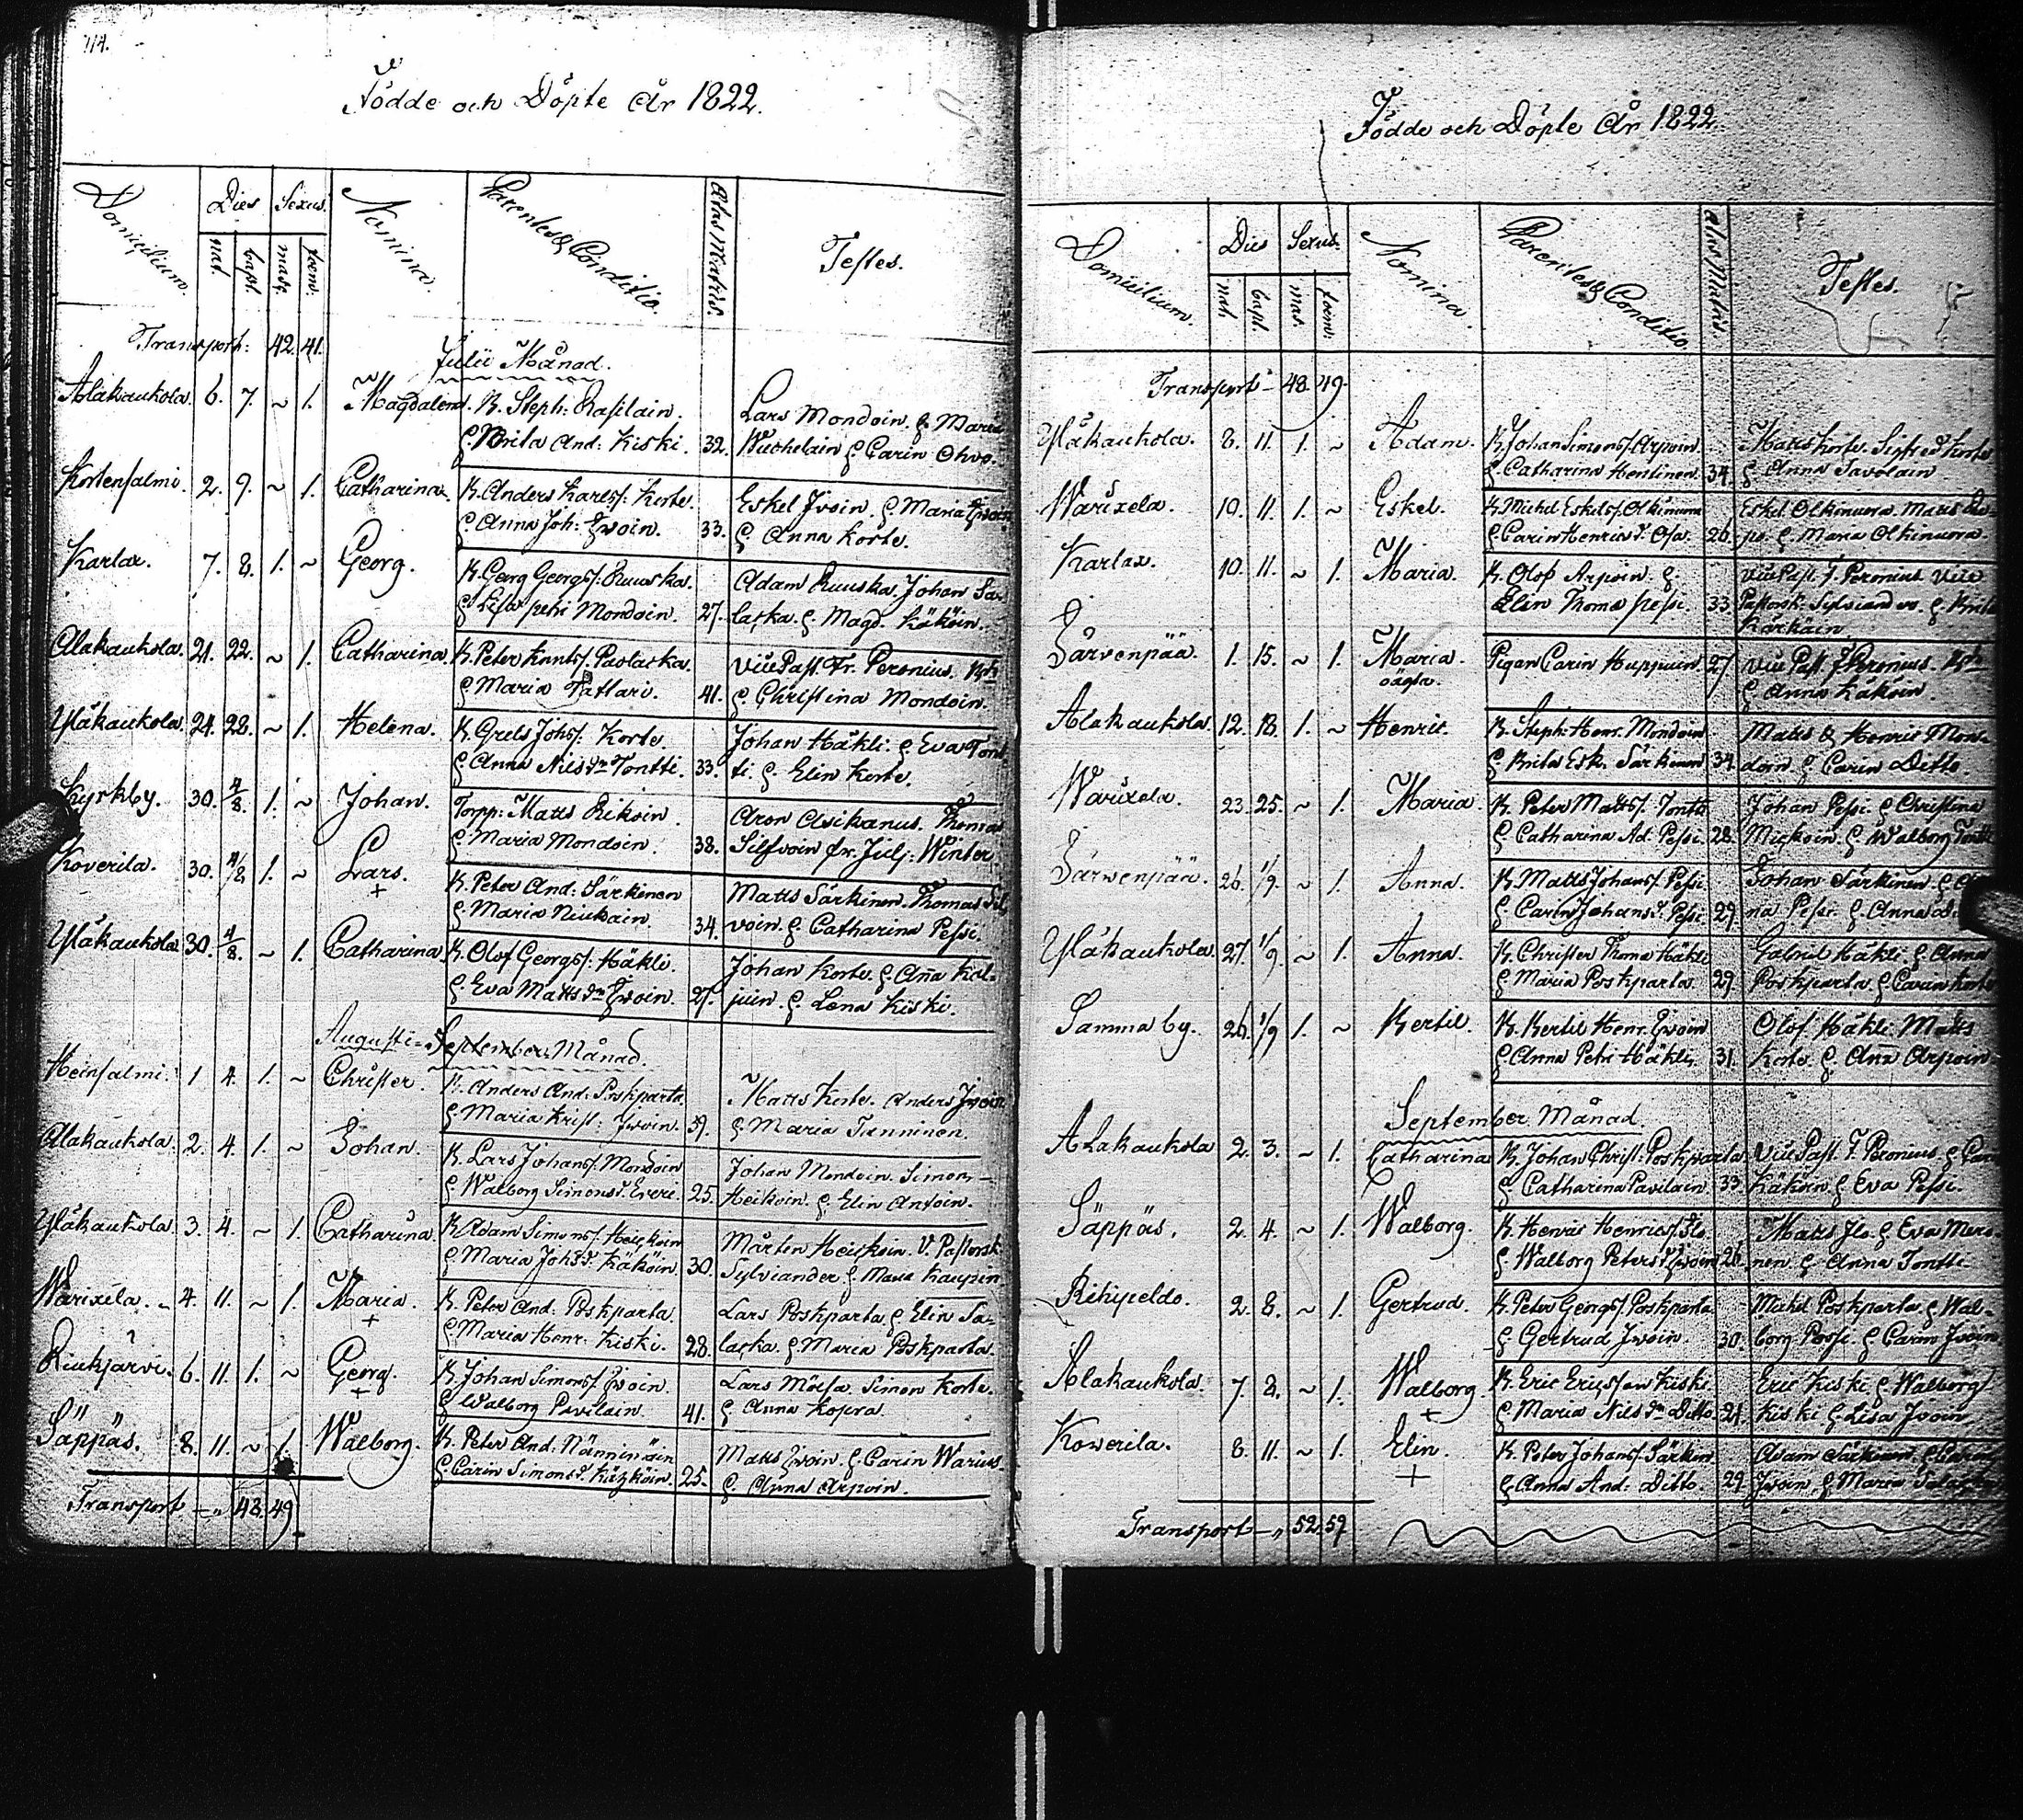 114.
Födde och Döpte År 1822.
Domicilium. Dies Sexus. Nomina. Parentes & Conditio. Ætas Matris. Testes.
nat. bapt. masc. foem:
Transport: 42. 41.
Julii Månad.
Alakaukola. 6. 7. ~ 1. Magdalena. B. Steph: Rasilain. Lars Mondoin. & Maria
& Brita And: Kiski. 32. & Carin Ohvo.
Kortensalmi. 2. 9. ~ 1. Catharina. B. Anders Karlss: Korte. Eskel Ivoin. & Maria Ivoin
& Anna Joh: Ivoin. 33. & Anna Korte.
Karlax. 7. 8. 1. ~ Georg. B. Georg Georgss: Ruuska. Adam Ruuska. Johan Sa-
& Lisa petri Mondoin. 27. lacka. & Magd. Käköin.
Alakaukola. 21. 22. ~ 1. Catharina. B. Peter Knutss. Paslacka. Vice Past. Fr. Peronius.
& Maria Tattari. 41. & Christina Mondoin.
Yläkaukola. 24. 28. ~ 1. Helena. B. Grels Johss. Korte. Johan Häkli. & Eva Tont
& Anna Nils dr Tontti. 33. ti. & Elin Korte.
Kyrkby. 30. 4/8. 1. ~ Johan. Torp: Matts Rikoin. Aron Asikanus. Thomas
& Maria Mondoin. 38. Silfvoin fr. Julj: Winter.
Koverila. 30. 4/8. 1. ~ Lars. B. Peter And: Särkinen Matts Särkinen. Thomas Sil
+ & Maria Niukain. 34. voin. & Catharina Pessi.
Yläkaukola 30. 4/8. ~ 1. Catharina. B. Olof Georgss: Häkli. Johan Korte. & Aña Kal-
& Eva Matts dr Ivoin. 27. juin. & Lena Kiski.
Augusti = September Månad.
Heinsalmi. 1 4. 1. ~ Christer. B. Anders And: Poskparta. Matts Korte. Anders Ivoin
& Maria Krist: Ivoin. 39. & Maria Tanninen.
Alakaukola. 2. 4. 1. ~ Johan. B. Lars Johanss. Mondoin Johan Mondoin. Simon
& Walborg Simons d. 25. Heikoin. & Elin Antoin.
Yläkaukola. 3. 4. ~ 1. Catharina B. Adam Simons s. Heickoin Mårten Heickoin. V. Pastorsk
& Maria Johs d. Käköin 30. Sylviander & Maria
Warixela. 4. 11. ~ 1. Maria. B. Peter And: Poskparta. Lars Poskparta & Elin Sa-
+ & Maria Henr: Kiski. 28. lacka. & Maria Poskparta.
Riukjärvi. 6. 11. 1. ~ Georg. B. Johan Simonss. Ivoin. Lars Mölsa. Simon Korte.
+ & Walborg Pavilain. 41. & Anna Kopra.
Säppäs. 8. 11. ~ 1. Walborg. B. Peter And: Nänninäin Matts Ivoin. & Carin Warius.
& Carin Simons d. 25. & Anna Arpoin.
Transport 48. 49
Födde och Döpte År 1822.
Domicilium. Dies Sexus. Nomina. Parentes & Conditio. Ætas Matris. Testes.
nat. bapt. mas. foem:
Transport 48. 49.
Yläkaukola. 8. 11. 1. ~ Adam. B. Johan Simonss. Arpoin. Matts Korte. Sigfred Korte
& Catharina Hentinen 34. & Anna Savolain
Warixela. 10. 11. 1. ~ Eskel. B. Michel Eskelss. Olkinuora Eskel Olkinuora. Matts
& Carin Henrics d. 26. & Maria Olkinuora.
Karlax. 10. 11. ~ 1. Maria. B. Olof Arpoin. & Vice Past. F. Peronius. Vice
Elin Thoma pessi. 33 Pastorsk: Sylviander. & Brita
Kärkäin.
Järvenpää. 1. 15. ~ 1. Maria. Pigan Carin Huppuin. 27 Vice Past. F. Peronius.
oägta. & Anna Käköin.
Alakaukola. 12. 18. 1. ~ Henric. B. Steph: Henr. Mondoin Matts & Henric Mon-
& Brita Esk. Särkinen 34. doin & Carin Ditto.
Warixela. 23. 25. ~ 1. Maria. B. Peter Mattss. Tontti Johan Pessi. & Christina
& Catharina Ad. Pessi. 28. Mickoin. & Walborg Tontti
Järwenpää. 26. 1/9. ~ 1. Anna. B. Matts Johanss. Pessi. Johan Särkinen &
& Carin Johans d. Pessi 29 na Pessi. & Anna
Yläkaukola. 27. 1/9. ~ 1. Anna. B. Christer Thoma Häkli Gabriel Häkli. & Anna
& Maria Poskparta. 29. Poskparta. & Carin Korte
Samma by. 26. 1/9 1. ~ Bertil. B. Bertil Henr. Ivoin Olof Häkli. Matts
& Anna Petri Häkli. 31. Korte. & Aña Arpoin
September Månad.
Alakaukola 2. 3. ~ 1. Catharina B. Johan Christ: Poskparta Vice Past. F. Peronius. &
& Catharina Pavilain. 33. Käköin. & Eva Pessi.
Säppäs. 2. 4. ~ 1. Walborg. B. Henric Henricss. Ilo. Matts Ilo. & Eva
& Walborg Peters d. Ivoin 26. nen. & Anna Tontti.
2. 8. ~ 1. Gertrud. B. Peter Georgss. Poskparta Michel Poskparta. & Wal-
& Gertrud Ivoin 30. borg Pessi. & Carin Ivoin
Alakaukola. 7. 8. ~ 1. Walborg B. Eric Ericsson Kiski. Eric Kiski. & Walborg
+ & Maria Nils dr Ditto. 21. Kiski & Lisa Ivoin
Kowerila. 8. 11 ~ 1. Elin. B. Peter Johanss. Särkin Adam Särkinen. &
+ & Anna And: Ditto. 29 Ivoin. & Maria
Transport 52. 59